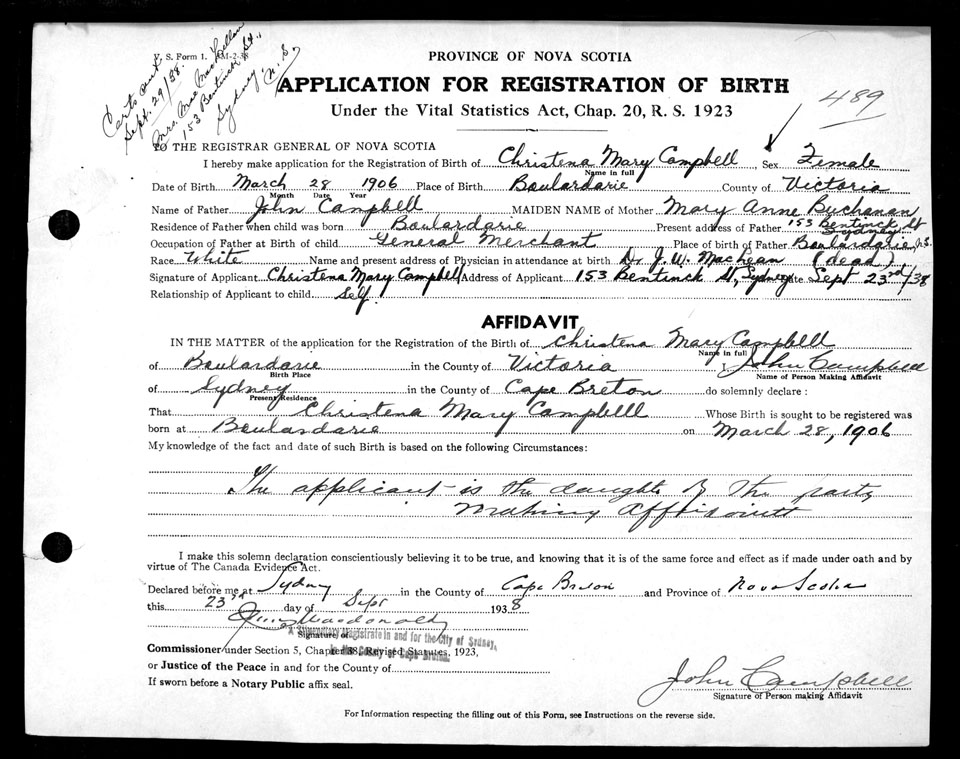 V. S. Form 1.
Certs sent
Sept. 29/38.
Mrs. Mae MacLellan
153 Bentinck St.,
Sydney, N. S.
PROVINCE OF NOVA SCOTIA
APPLICATION FOR REGISTRATION OF BIRTH
Under the Vital Statistics Act, Chap. 20, R. S. 1923
489
TO THE REGISTRAR GENERAL OF NOVA SCOTIA
I hereby make application for the Registration of Birth of Christena Mary Campbell, Sex Female
Name in full
Date of Birth March 28 1906 Place of Birth Boulardarie County of Victoria
Month Date Year
Name of Father John Campbell MAIDEN NAME of Mother Mary Anne Buchanan
Residence of Father when child was born Boulardarie Present address of Father 153 Bentinck St Sydney
Occupation of Father at Birth of child General Merchant Place of birth of Father Boulardarie, N.S.
Race White Name and present address of Physician in attendance at birth Dr J. W. MacLean (dead)
Signature of Applicant Christena Mary Campbell Address of Applicant 153 Bentinck St, Sydney Date Sept 23rd/38
Relationship of Applicant to child Self
AFFIDAVIT
IN THE MATTER of the application for the Registration of the Birth of Christena Mary Campbell
Name in full
of Boulardarie in the County of Victoria John Campbell
Birth Place Name of Person Making Affidavit
of Sydney in the County of Cape Breton do solemnly declare :
Present Residence
That Christena Mary Campbell Whose Birth is sought to be registered was
born at Boulardarie on March 28, 1906
My knowledge of the fact and date of such Birth is based on the following Circumstances:
The applicant is the daughter of the party
making affidavit
I make this solemn declaration conscientiously believing it to be true, and knowing that it is of the same force and effect as if made under oath and by
virtue of The Canada Evidence Act.
Declared before me at Sydney in the County of Cape Breton and Province of Nova Scotia
this 23rd day of Sept 1938
Macdonald
Signature of
A Stipendiary Magistrate in and for the City of Sydney,
in the County of Cape Breton.
Commissioner under Section 5, Chapter 38, Revised Statutes, 1923,
or Justice of the Peace in and for the County of
If sworn before a Notary Public affix seal.
John Campbell
Signature of Person making Affidavit
For Information respecting the filling out of this Form, see Instructions on the reverse side.